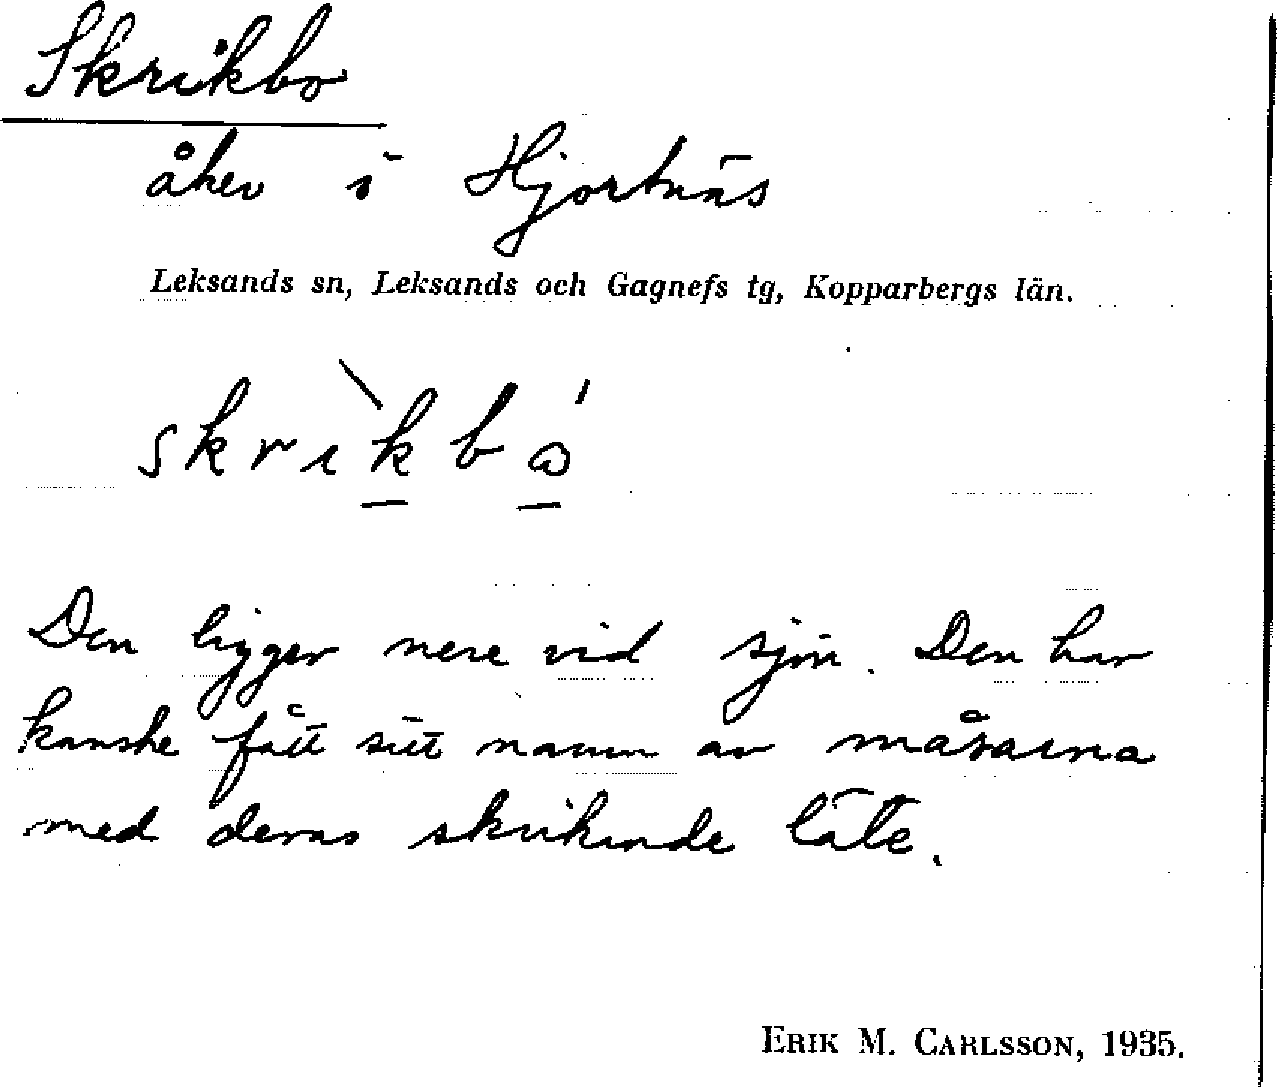 Skrikbo
åker i Hjortnäs
Leksands sn, Leksands och Gagnefs tg, Kopparbergs län.
skrìkbǿ
Den ligger nere vid sjön. Den har
kanske fått sitt namn av måsarna
med deras skrikande läte.
ERIK M. CARLSSON, 1935.